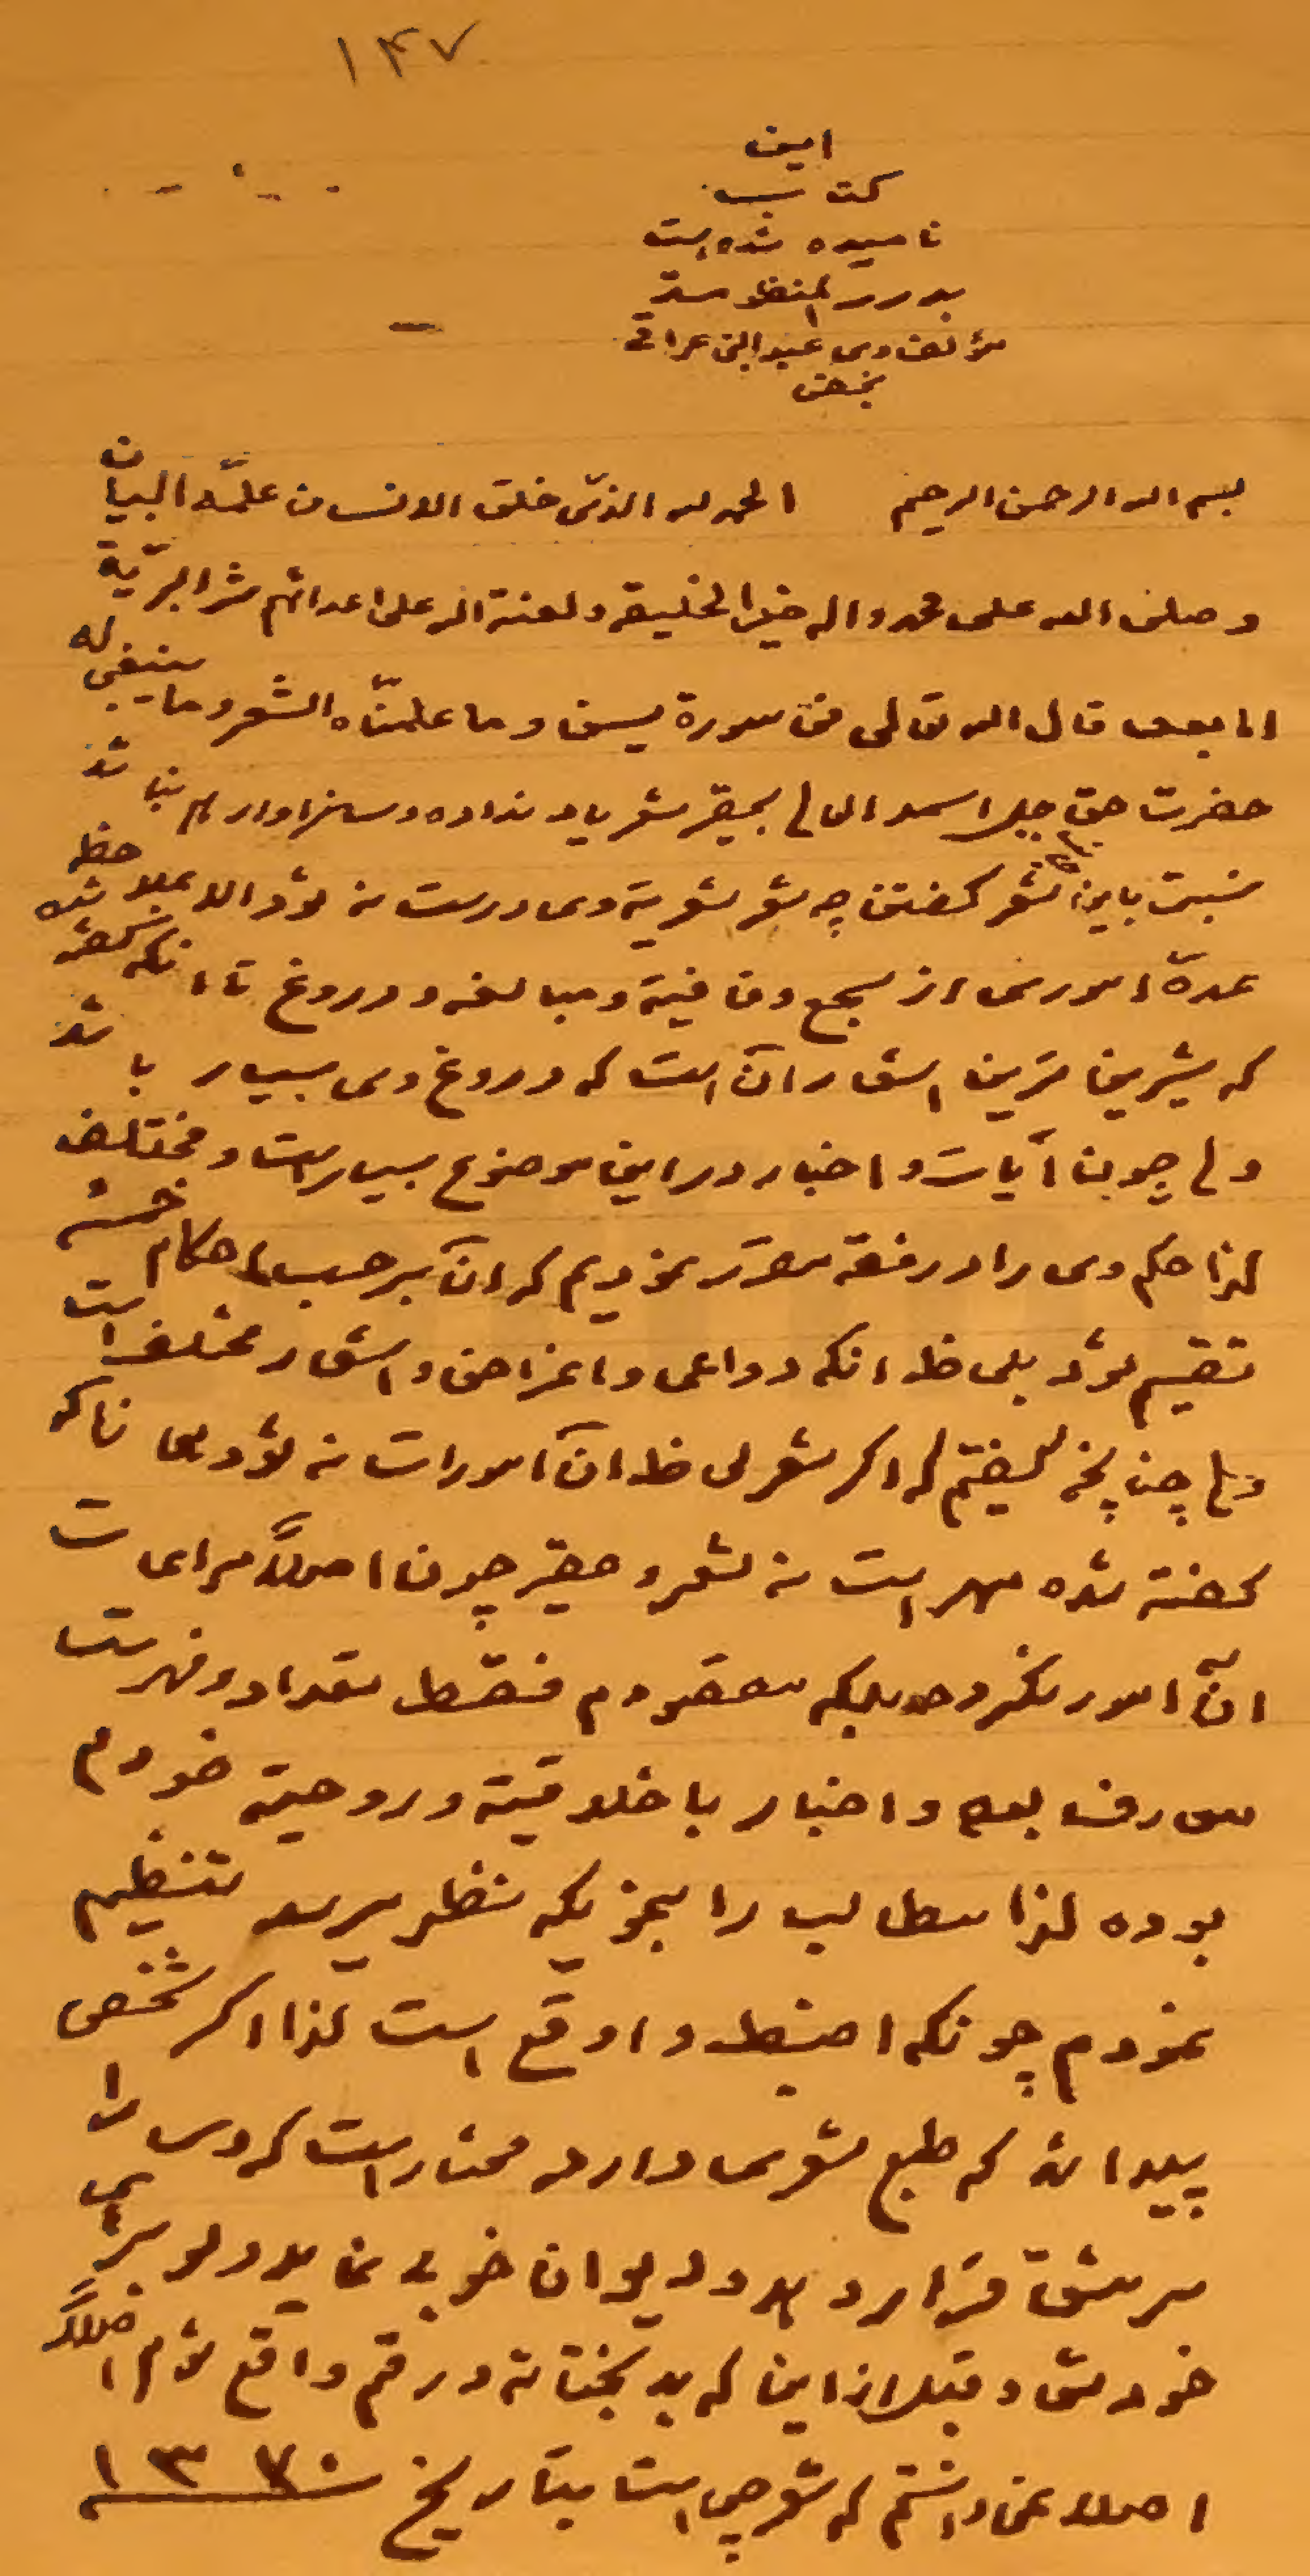 ۱۴۷
این
کتاب
نامیده شده است
بدرر المنظومة
مؤلف وی عبدالنبی عراقی
نجفی
بسم الله الرحمن الرحیم الحمد لله الذی خلق الانسان علّمه البیان
و صلی الله علی محمد واله خیر الخلیقه و لعنة الله علی اعدائهم شر البریّة
اما بعد قال الله تعالی فی سورة یسن و ما علمنّاه الشعر و ما ینبغی له
حضرت حق جل اسمه العالی بحقیر شعر یاد نداده و سزاوار هم نباشد
نسبت باین شعر گفتن چه شعر شعریة وی درست نه شود الا بملاحظه
عدة اموری از سجع و قافیة و مبالغه و دروغ تا انکه گفته شده
که شیرین ترین اشعار آن است که دروغ وی بسیار باشد
ولی چون آیات و اخبار در این موضوع بسیار است و مختلف
لذا حکم وی را در فقه مقرر نمودیم که آن برحسب احکام خمسه
تقسیم شود بلحاظ انکه دواعی و اغراض و اشعار مختلف است
ولی چنانچه گفتم که اگر شعر لحاظ آن امورات نه شود بلی
گفته شده است نه شعر و حقیر چون اصلاً مراعات
آن امور نکرده بلکه مقصودم فقط تعداد و فهرست
معارف بوده و اخبار با خلاقیة و روحیة خودم
بوده لذا مطالب را بنحویکه بنظر میرسد تنظیم
نمودم چونکه اضبط و اوقع است لذا اگر شخصی
پیدا شد که طبع شعری دارد مختار است که وی را
سرمشق قرار دهد و دیوان خوبی نماید ولو برای
خودش و قبل از این که بدبختانه در قم واقع شوم اصلاً
اصلا نمی دانستم که شعر چی است بتاریخ ۱۳۷۰